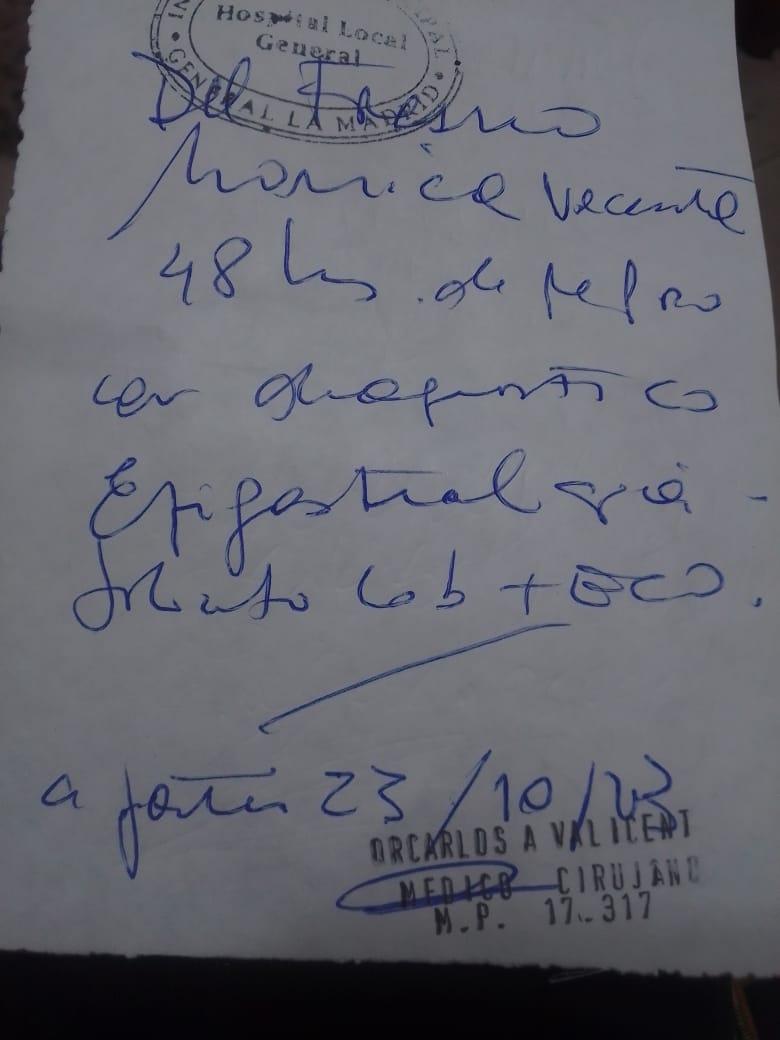 Hospital Local
General
GENERAL LA MADRID
Del Fresno
Monica Vecente
48 hs. de repro
con diagnostico
Epigastralgia -
solicito Lab + ECO.
a partir 23/10/23
DR CARLOS A VALICENT
MEDICO CIRUJANO
M.P. 17.317